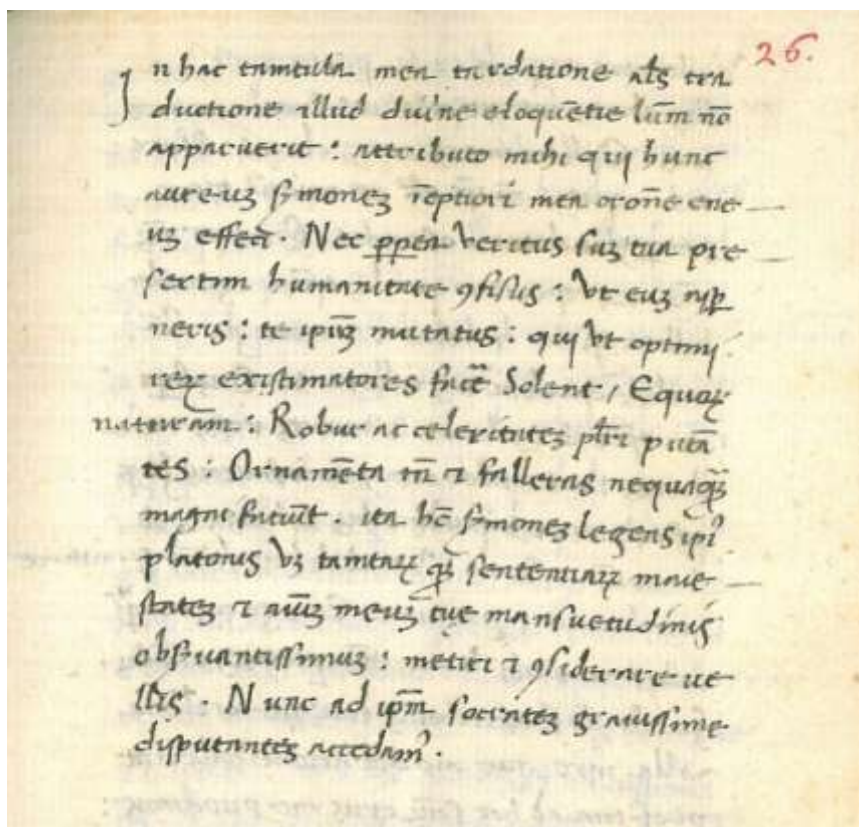 26.
In hac tamtula mea tardatione al̄s tra
ductione illud diuine eloquētie lum̄ nō
apparuerit : attributo mihi qui hunc
aureuʒ ẜmoneʒ īeptiori mea oror̄ne ene
uʒ effeci . Nec ꝓꝑea veritus suʒ tua pre
sertim humanitate ꝯfisus : Vt euʒ aꝑ
neris : te ipīʒ mutatus : qui vt optimi
reꝝ existimatores facē Solent / Equoꝝ
naturam̄ : Robur ac celeritateʒ pl̄ri putā
tes : Ornamēta tn̄ ⁊ falleras nequaꝗ̄ʒ
magni faciūt . ita hc̄ ẜmoneʒ legens ip̄iꝰ
platonis vʒ tamtaꝝ ꝗ̄ʒ sententiaꝝ maie
stateʒ ⁊ aīuʒ meuʒ tue mansuetudinis
obẜuantissimuʒ : metiri ⁊ ꝯsiderare ue
llis . Nunc ad ipm̄ socrateʒ grauissime
disputanteʒ accedamꝰ .